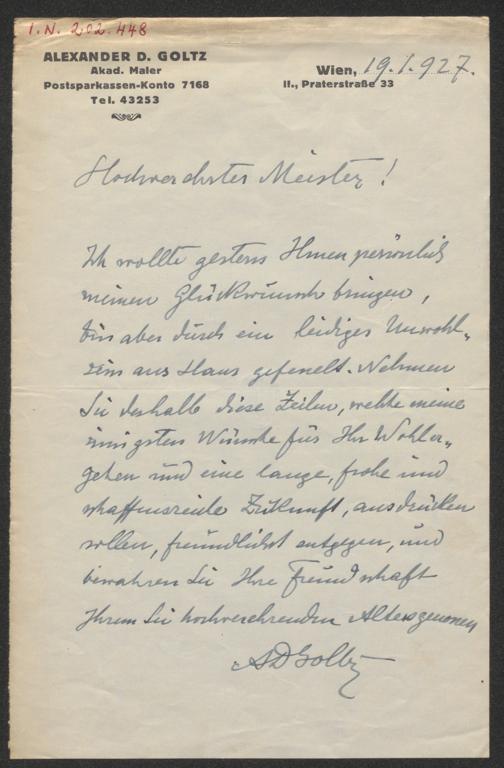 I.N. 202.448
ALEXANDER D. GOLTZ
Akad. Maler
Postsparkassen-Konto 7168
Tel. 43253
Wien, 19. I. 927.
II., Praterstraße 33
Hochverehrter Meister!
Ich wollte gestern Ihnen persönlich
meinen Glückwunsch bringen,
bin aber durch ein leidiges Unwohl-
sein ans Haus gefesselt. Nehmen
Sie deshalb diese Zeilen, welche meine
innigsten Wünsche für Ihr Wohler-
gehen und eine lange, frohe und
schaffensreiche Zukunft, ausdrücken
sollen, freundlichst entgegen, und
bewahren Sie Ihre Freundschaft
Ihrem Sie hochverehrenden Altersgenossen
ADGoltz